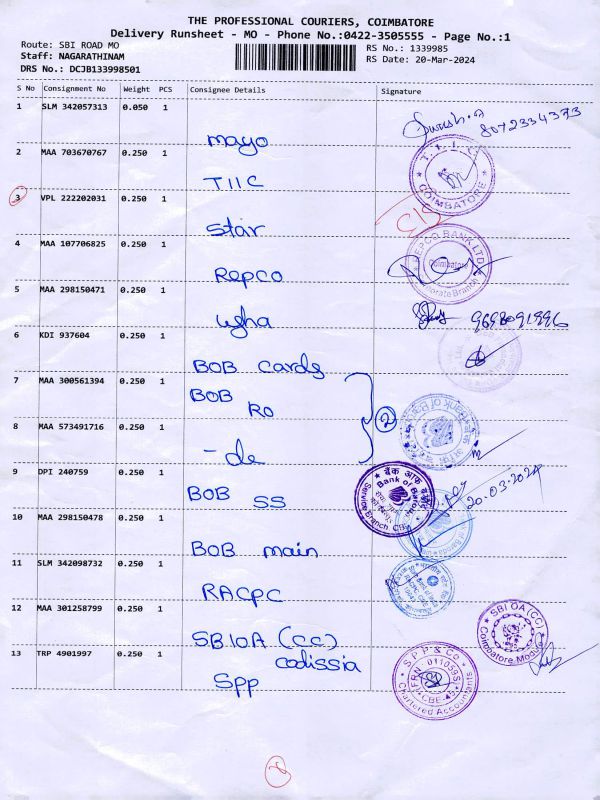 THE PROFESSIONAL COURIERS, COIMBATORE
Delivery Runsheet - MO - Phone No.:0422-3505555 - Page No.:1
Route: SBI ROAD MO
RS No.: 1339985
Staff: NAGARATHINAM
RS Date: 20-Mar-2024
DRS No.: DCJB133998501
S No Consignment No Weight PCS Consignee Details Signature
1 SLM 342057313 0.050 1
8072334373
mayo
2 MAA 703670767 0.250 1
T.I.I.C
COIMBATORE
TIIC
3 VPL 222202031 0.250 1
star
C/S
4 MAA 107706825 0.250 1
REPCO BANK LTD
Coimbatore
Corporate Branch
Repco
5 MAA 298150471 0.250 1
usha
6 KDI 937604 0.250 1
BOB Cards
7 MAA 300561394 0.250 1
BOB
RO
2
8 MAA 573491716 0.250 1
- do
9 DPI 240759 0.250 1
BOB SS
बैंक ऑफ बड़ौदा
Bank of Baroda
Service Branch
20.03.2024
10 MAA 298150478 0.250 1
BOB main
11 SLM 342098732 0.250 1
RACPC
12 MAA 301258799 0.250 1
SBIOA (CC)
codissia
SBI OA (CC)
Coimbatore Module
13 TRP 4901997 0.250 1
Spp
S P P & Co
FRN: 011059S
CBE-45
Chartered Accountants